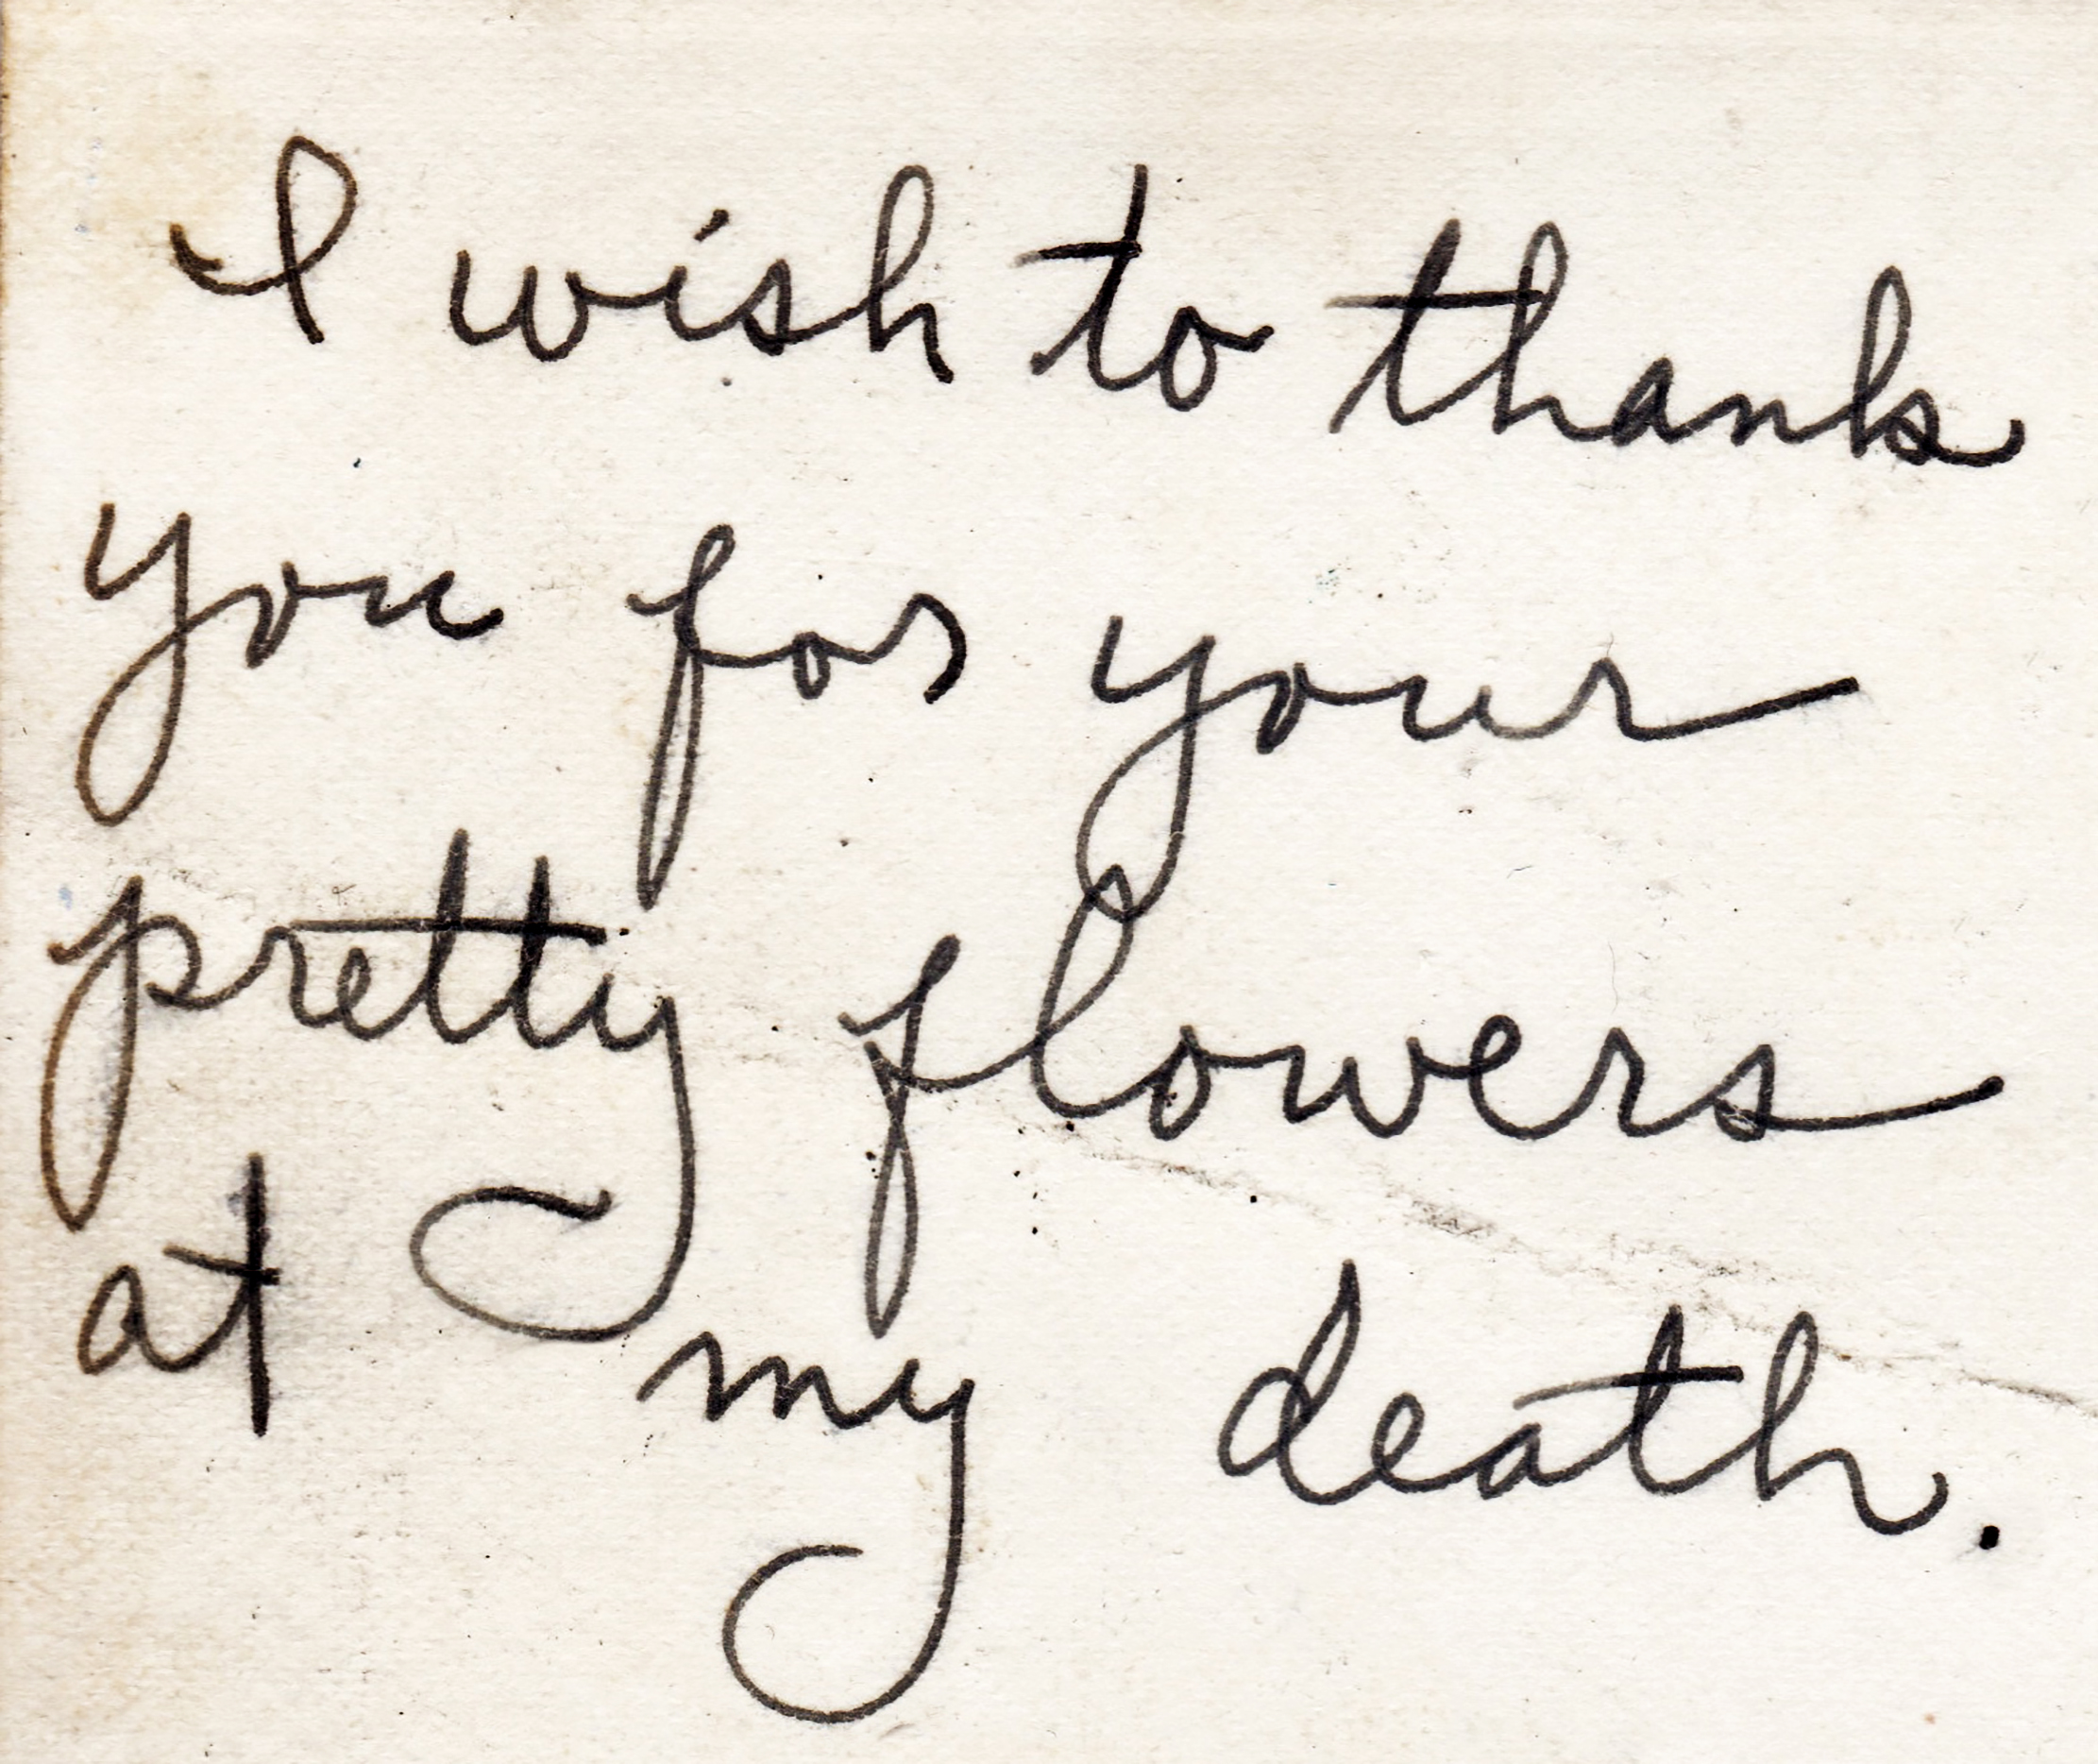 I wish to thank
you for your
pretty flowers
at my death.